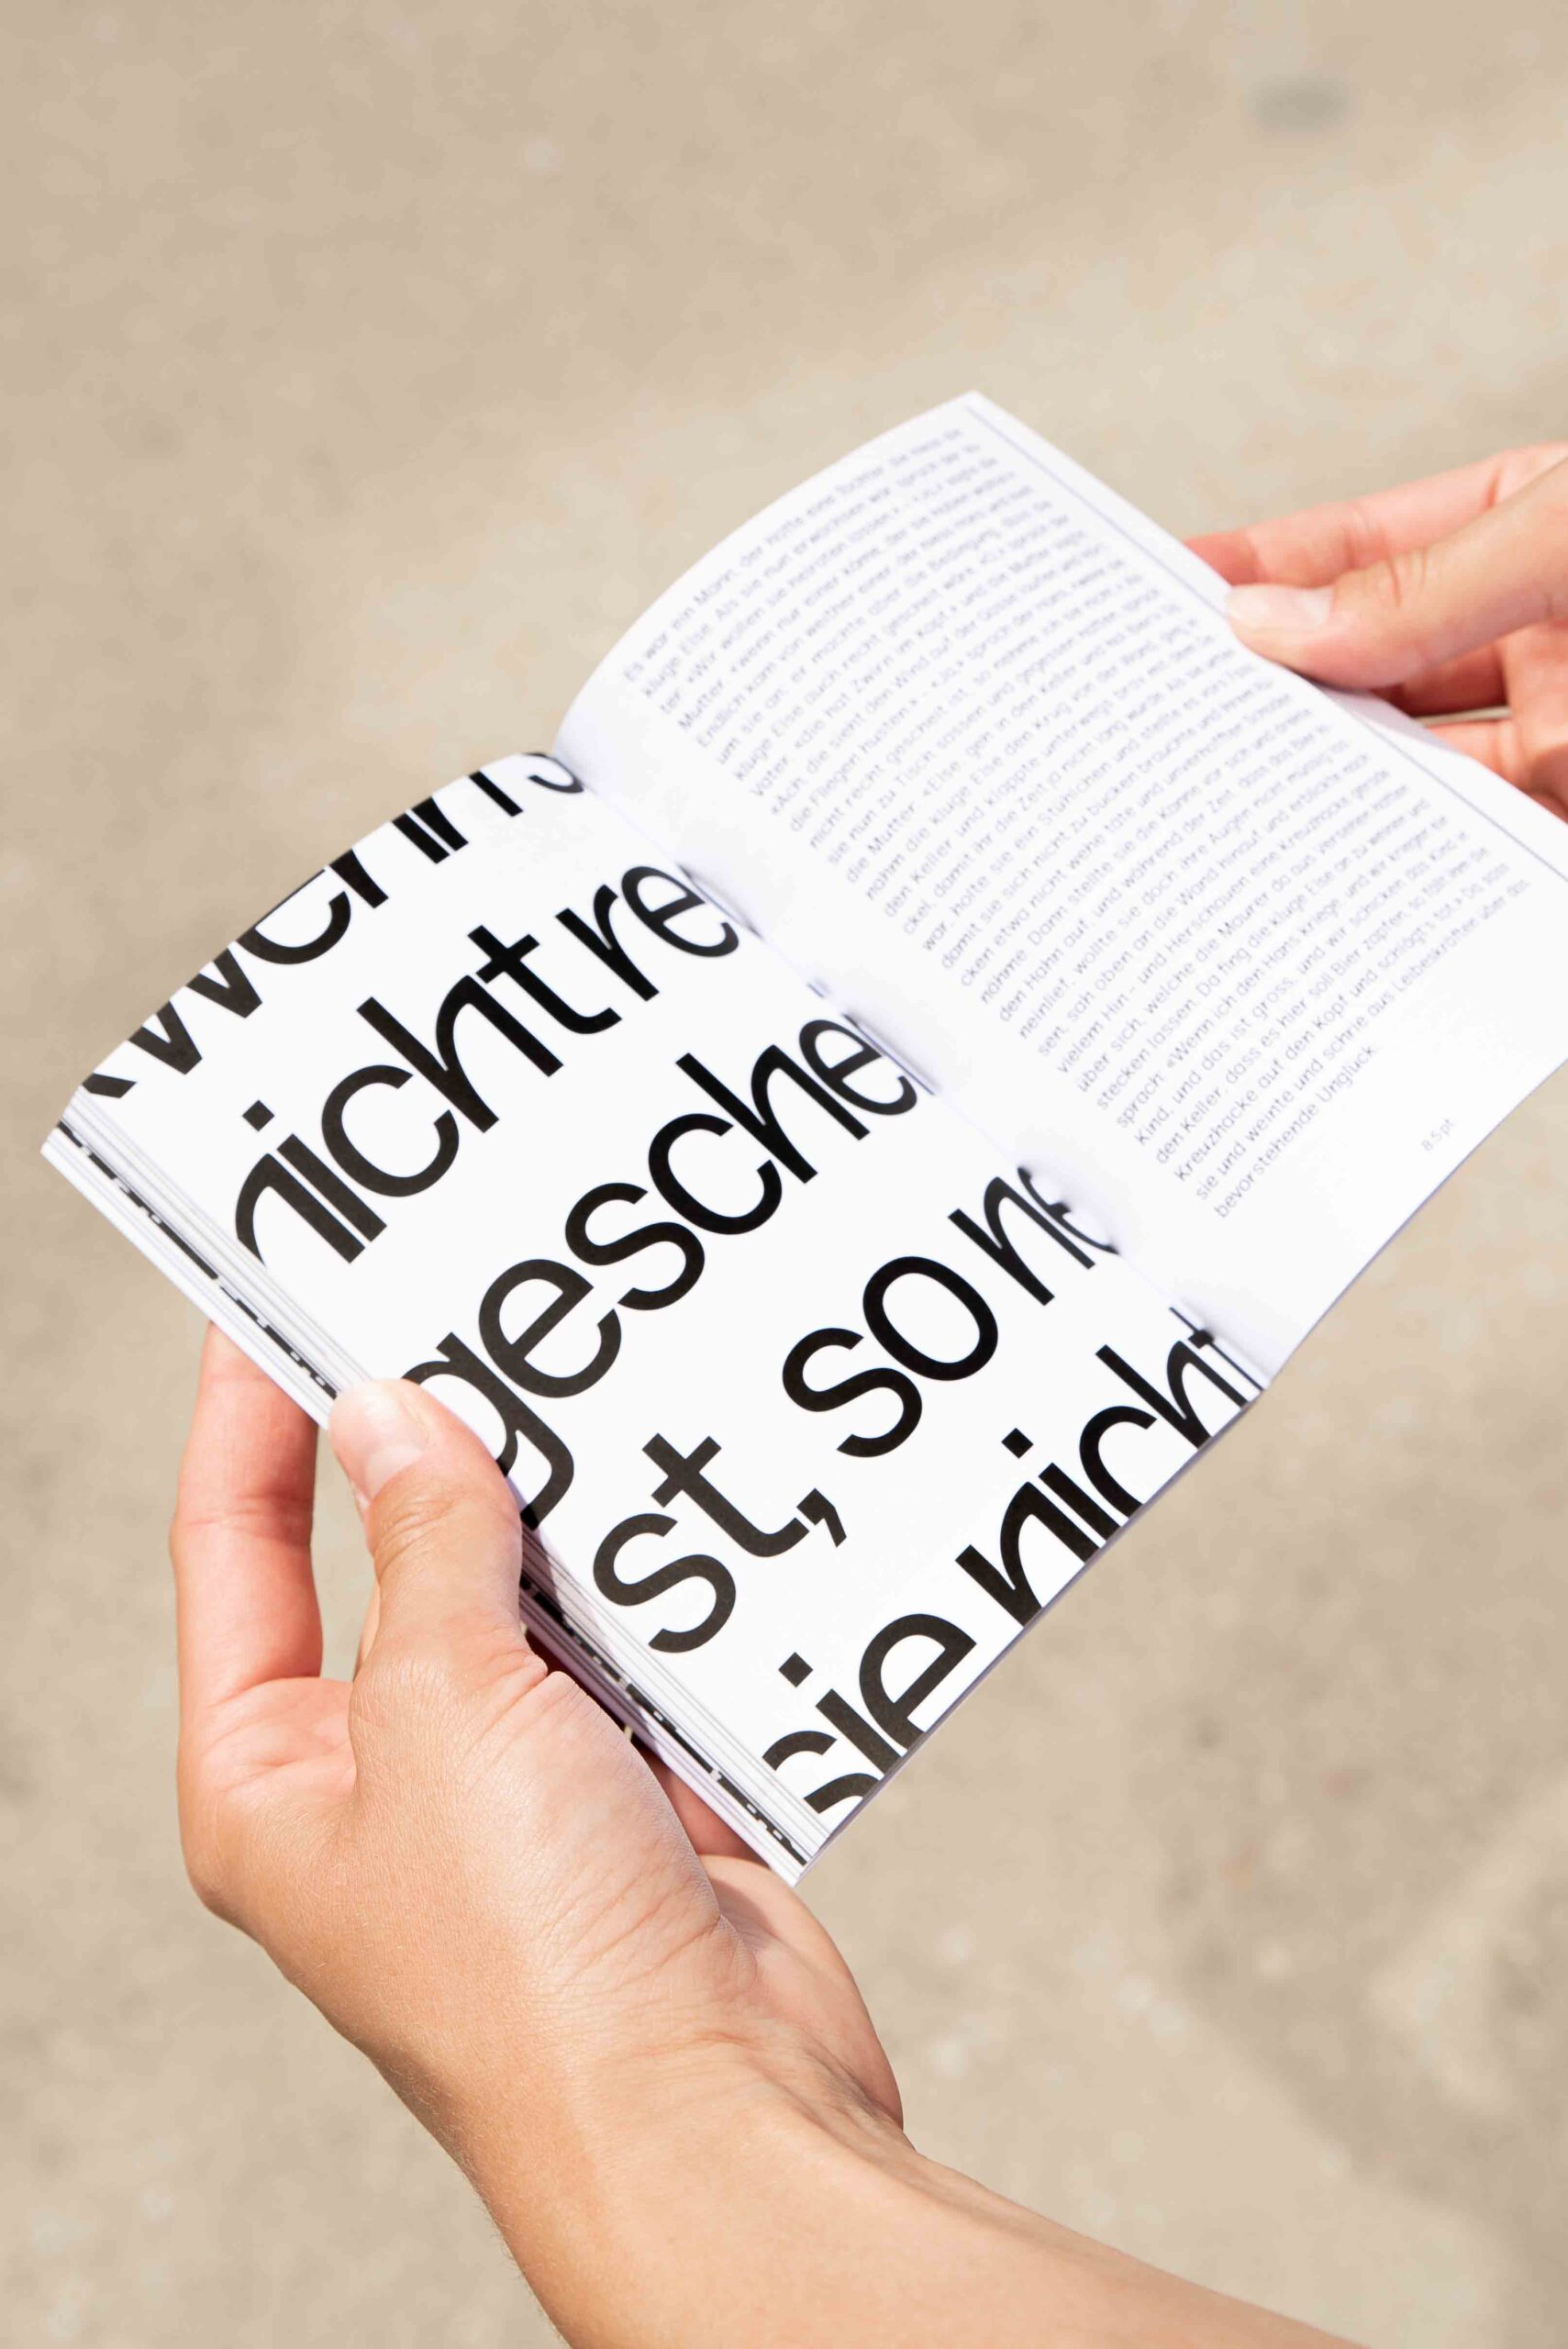 nicht re
gesche
st, so ne
sie nicht
Es war ein Mann, der hatte eine Tochter, die hiess die
kluge Else. Als sie nun erwachsen war, sprach der Va-
ter: «Wir wollen sie heiraten lassen.» «Ja,» sagte die
Mutter, «wenn nur einer käme, der sie haben wollte.»
Endlich kam von weither einer, der hiess Hans und hielt
um sie an, er machte aber die Bedingung, dass die
kluge Else auch recht gescheit wäre. «O,» sprach der
Vater, «die hat Zwirn im Kopf,» und die Mutter sagte:
«Ach, die sieht den Wind auf der Gasse laufen und hört
die Fliegen husten.» «Ja,» sprach der Hans, «wenn sie
nicht recht gescheit ist, so nehme ich sie nicht.» Als
sie nun zu Tisch sassen und gegessen hatten, sprach
die Mutter: «Else, geh in den Keller und hol Bier.» Da
nahm die kluge Else den Krug von der Wand, ging in
den Keller und klappte unterwegs brav mit dem De-
ckel, damit ihr die Zeit ja nicht lang würde. Als sie unten
war, holte sie ein Stühlchen und stellte es vors Fass,
damit sie sich nicht zu bücken brauchte und ihrem Rü-
cken etwa nicht wehe täte und unverhofften Schaden
nähme. Dann stellte sie die Kanne vor sich und drehte
den Hahn auf, und während der Zeit, dass das Bier hi-
neinlief, wollte sie doch ihre Augen nicht müssig las-
sen, sah oben an die Wand hinauf und erblickte nach
vielem Hin- und Herschauen eine Kreuzhacke gerade
über sich, welche die Maurer da aus Versehen hatten
stecken lassen. Da fing die kluge Else an zu weinen und
sprach: «Wenn ich den Hans kriege, und wir kriegen ein
Kind, und das ist gross, und wir schicken das Kind in
den Keller, dass es hier soll Bier zapfen, so fällt ihm die
Kreuzhacke auf den Kopf und schlägt's tot.» Da sass
sie und weinte und schrie aus Leibeskräften über das
bevorstehende Unglück.
8.5 pt